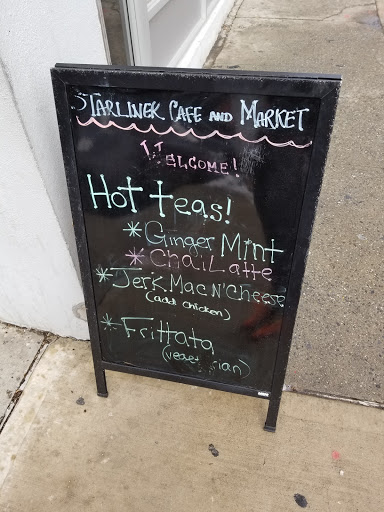 STARLINEK CAFE AND MARKET
WELCOME!
Hot teas!
* Ginger Mint
* Chai Latte
* Jerk Mac N' Cheese
(add chicken)
* Frittata